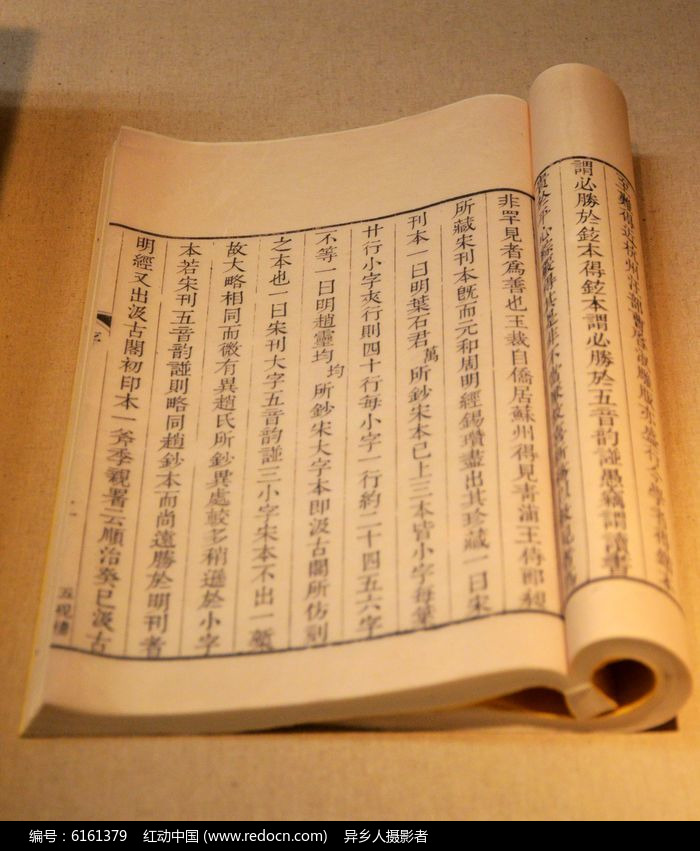 謂必勝於鉉本得鉉本謂必勝於五音韵譜愚竊謂讀書
非罕見者爲善也玉裁自僑居蘇州得見青浦王侍郎昶
所藏宋刊本旣而元和周明經錫瓚盡出其珍藏一曰宋
刊本一曰明葉石君萬所鈔宋本已上三本皆小字每葉
廿行小字夾行則四十行每小字一行約二十四五六字
不等一曰明趙靈均均所鈔宋大字本即汲古閣所仿刻
之本也一曰宋刊大字五音韵譜三小字宋本不出一槧
故大略相同而微有異趙氏所鈔異處較多稍遜於小字
本若宋刊五音韵譜則略同趙鈔本而尚遠勝於明刊者
明經又出汲古閣初印本一斧季親署云順治癸巳汲古
五硯樓
编号：6161379 红动中国 (www.redocn.com) 异乡人摄影者